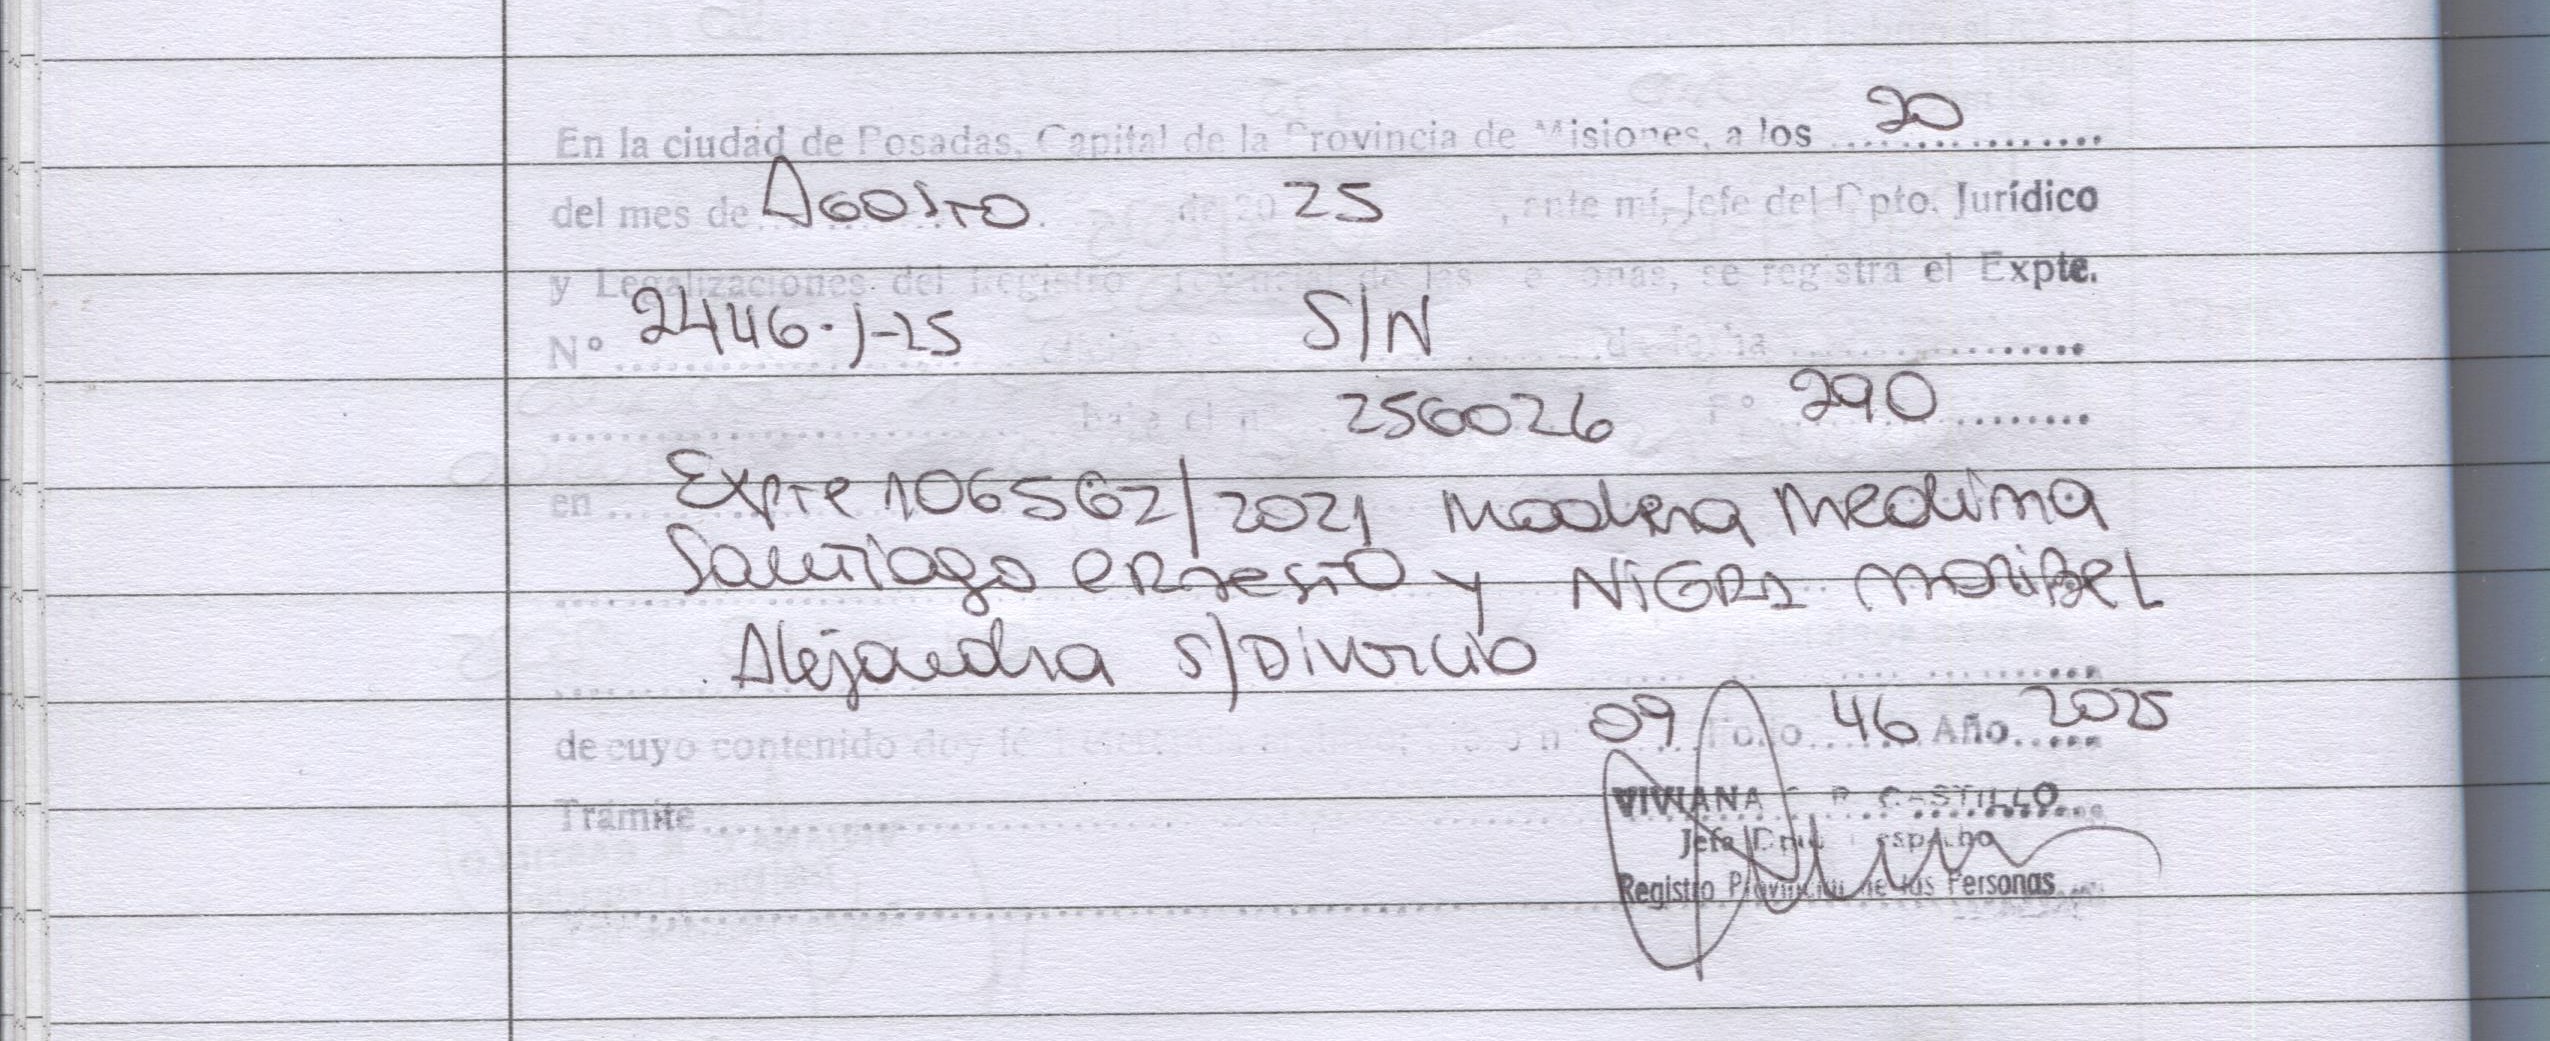 En la ciudad de Posadas, Capital de la Provincia de Misiones, a los 20
del mes de Agosto de 20 25, ante mí, Jefe del Dpto. Jurídico
y Legalizaciones del Registro Provincial de las Personas, se registra el Expte.
Nº 2446-J-25 S/N de fecha
bajo el nº 256026 Fº 290
en Expte 106562/2021 Madera Medina
Santiago Ernesto y NIGRA Maribel
Alejandra S/Divorcio
de cuyo contenido doy fé 09 Folio 46 Año 2025
VIVIANA CASTILLO
Trámite
Jefa Dpto Despacho
Registro Provincial de las Personas